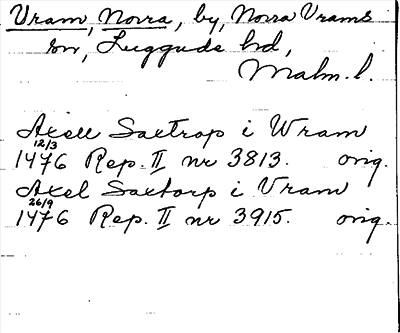 Vram, Norra, by, Norra Vrams
sn, Luggude hd,
Malm. l.
Axell Saxtrop i Wram
12/3
1476 Rep. II nr 3813. orig.
Axel Saxtorp i Vram
26/9
1476 Rep. II nr 3915. orig.